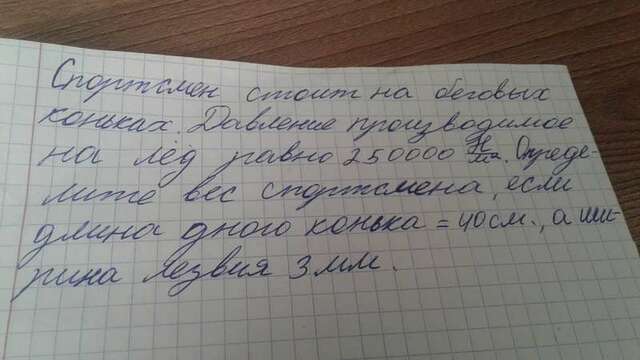 Спортсмен стоит на беговых
коньках. Давление производимое
на лёд равно 250000 Н/м². Опреде-
лите вес спортсмена, если
длина дного конька = 40см., а ши-
рина лезвия 3 мм.